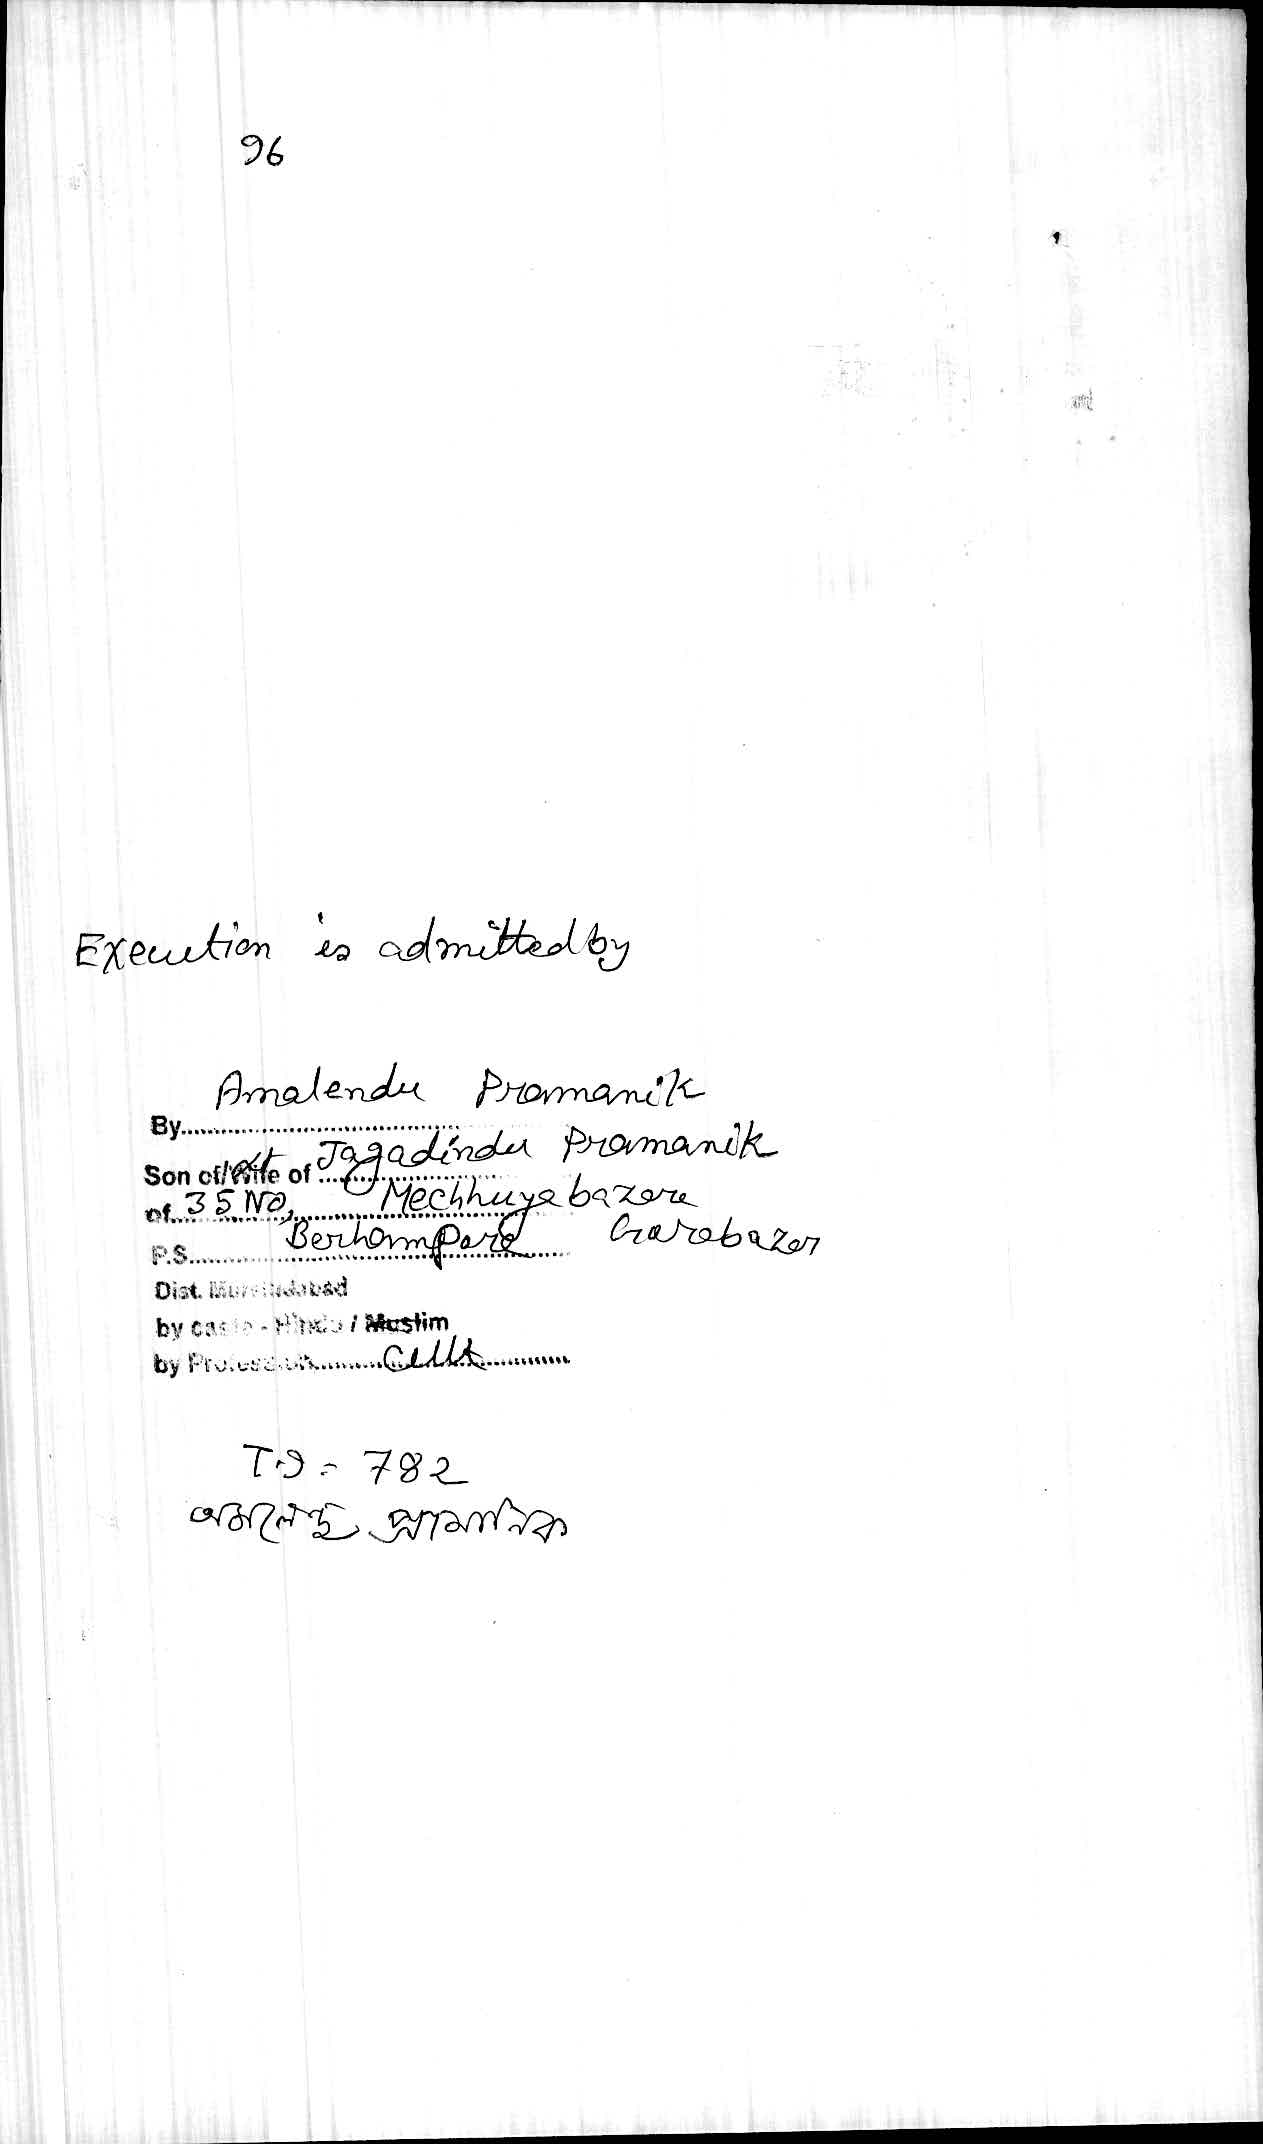 96
Execution is admitted by
Amalendu Pramanik
By
Son of/Wife of Jagadindu Pramanik
of 35 No, Mechhuyabazare
P.S. Berhampore Gorabazar
Dist. Murshidabad
by caste - Hindu / Muslim
by Profession
T.I = 782
অমলেন্দু প্রামানিক